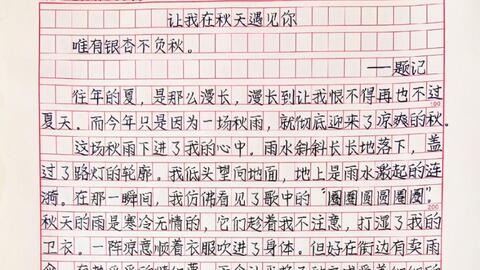 让我在秋天遇见你
唯有银杏不负秋。
——题记
往年的夏，是那么漫长，漫长到让我恨不得再也不过
夏天。而今年只是因为一场秋雨，就彻底迎来了凉爽的秋。
100
这场秋雨下进了我的心中。雨水斜斜长长地落下，盖
过了路灯的轮廓。我低头望向地面，地上是雨水激起的涟
漪。在那一瞬间，我仿佛看见了歌中的“圈圈圆圆圈圈”。
200
秋天的雨是寒冷无情的，它们趁着我不注意，打湿了我的
卫衣。一阵凉意顺着衣服吹进了身体。但好在街边有卖雨